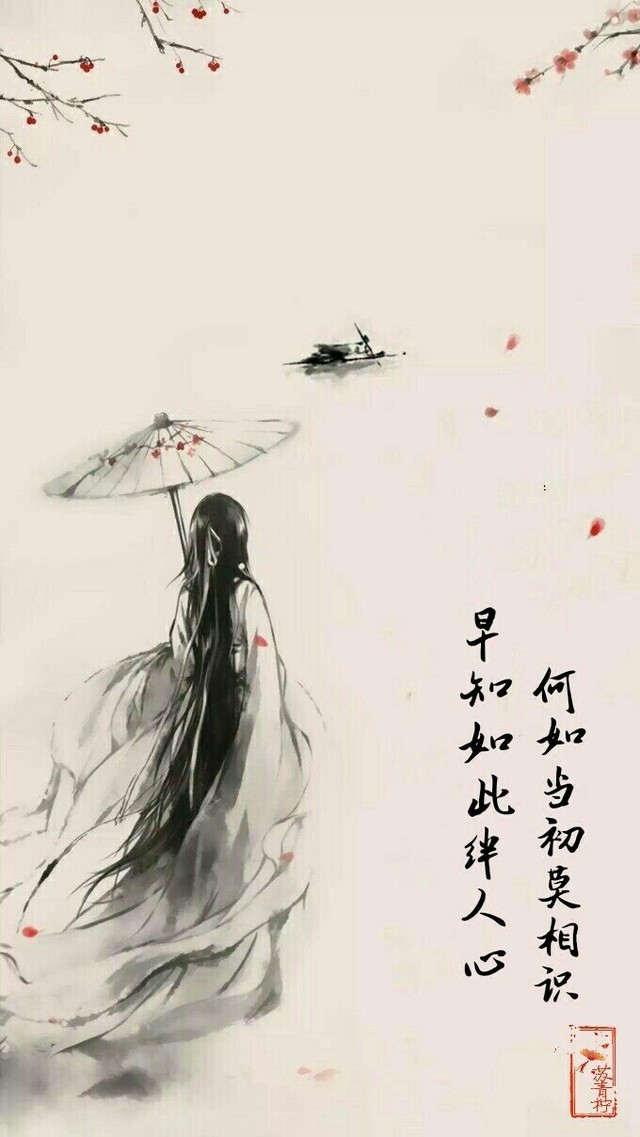 早知如此绊人心
何如当初莫相识
苏青柠